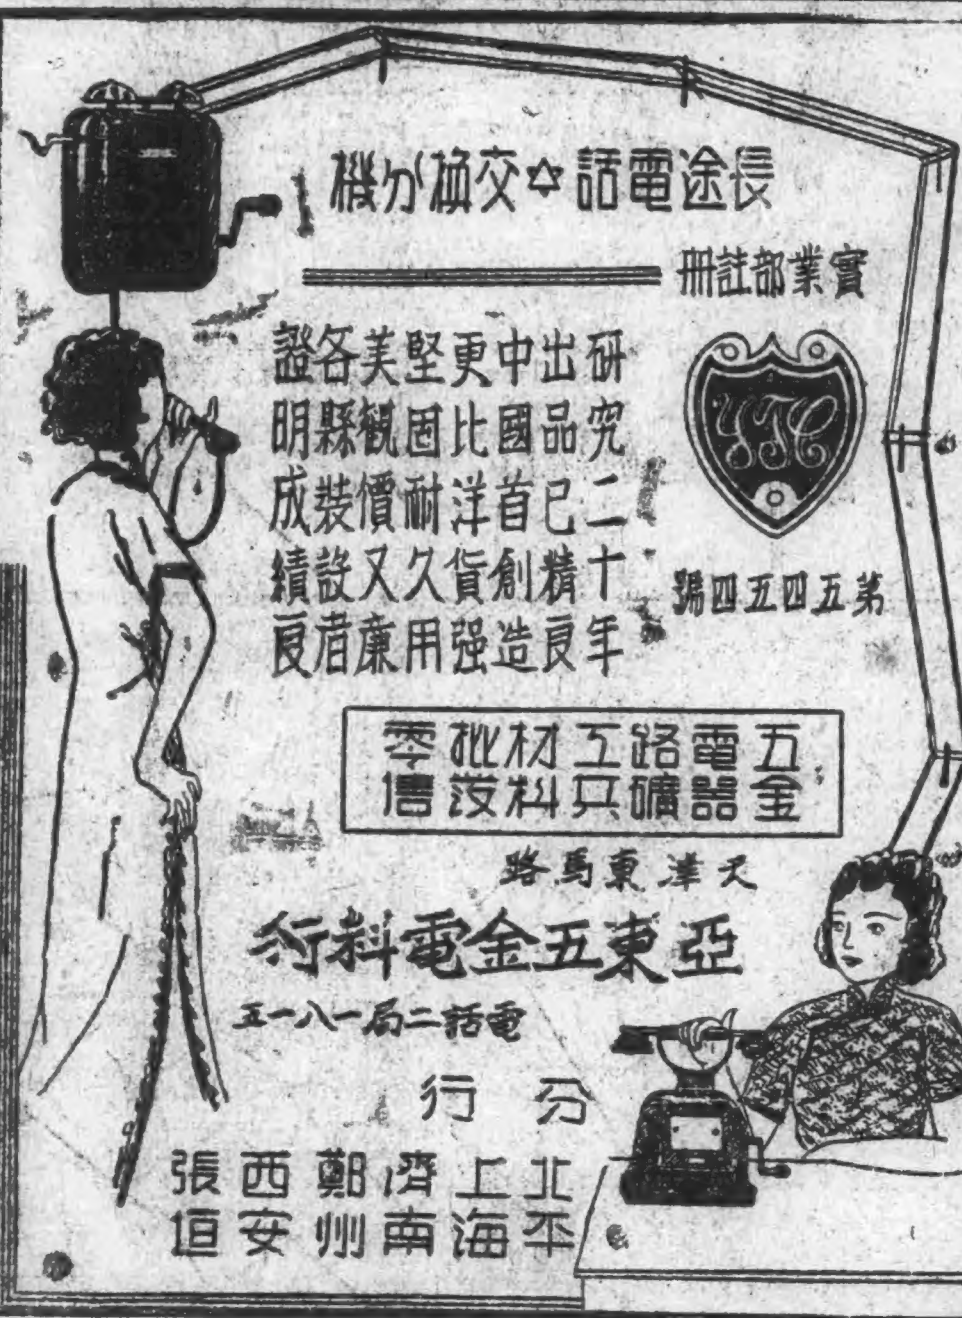 長途電話☆交換分機
實業部註冊
YTC
第五四五四號
研究二十年
出品已精良
中國首創造
更比洋貨强
堅固耐久用
美觀價又廉
各縣裝設者
證明成績良
五金
電器
路礦
工兵
材料
批發
零售
天津東馬路
亞東五金電料行
電話二局一八一五
分行
北平
上海
濟南
鄭州
西安
張垣